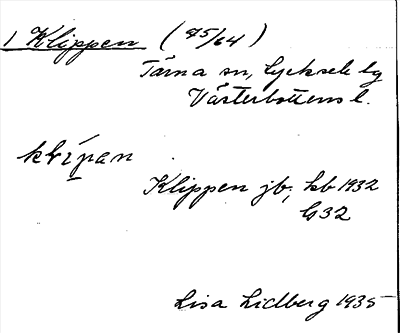 1 Klippen (95/64)
Tärna sn, Lycksele lg
Västerbottens l.
klípan
Klippen jb, kb 1932
G32
Lisa Lidberg 1935